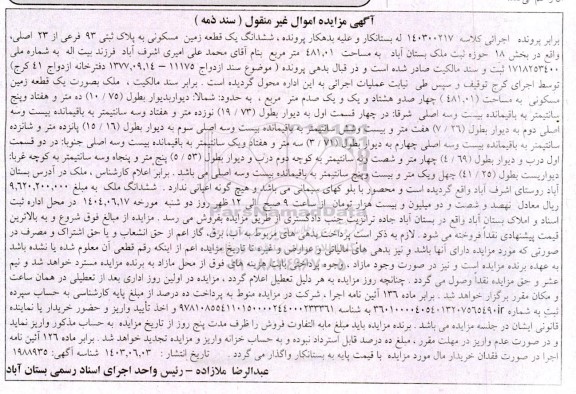 آگهی مزایده اموال غیر منقول ( سند ذمه )
برابر پرونده اجرائی کلاسه ۱۴۰۳۰۰۲۱۷ له بستانکار و علیه بدهکار پرونده ، ششدانگ یک قطعه زمین مسکونی به پلاک ثبتی ۹۳ فرعی از ۲۳ اصلی،
واقع در بخش ۱۸ حوزه ثبت ملک بستان آباد به مساحت ۴۸۱,۰۱ متر مربع بنام آقای محمد علی امیری اشرف آباد فرزند بیت اله به شماره ملی
۱۷۱۸۲۵۳۴۰۰ ثبت و سند مالکیت صادر شده است و در قبال بدهی پرونده ( موضوع سند ازدواج ۱۱۱۷۵ – ۱۳۷۷,۰۹,۱۴ دفترخانه ازدواج ۴۱ کرج)
توسط اجرای کرج توقیف و سپس طی نیابت عملیات اجرائی به این اداره محول گردیده است . برابر سند مالکیت ، ملک بصورت یک قطعه زمین
مسکونی به مساحت ( ۴۸۱,۰۱) چهار صدو هشتاد و یک و یک صدم متر مربع ، به حدود: شمالا: دیواربدیوار بطول (۷۵ / ۱۰) ده متر و هفتاد وپنج
سانتیمتر به باقیمانده بیست وسه اصلی شرقا: در چهار قسمت اول به دیوار بطول (۷۳ / ۱۹) نوزده متر و هفتاد وسه سانتیمتر به باقیمانده بیست وسه
اصلی دوم به دیوار بطول (۲۶ / ۷) هفت متر و بیست وشش سانتیمتر به باقیمانده بیست وسه اصلی سوم به دیوار بطول (۱۶ / ۱۵) پانزده متر و شانزده
سانتیمتر به باقیمانده بیست وسه اصلی چهارم به دیوار بطول (۷۱ / ۳) سه متر و هفتاد ویک سانتیمتر به باقیمانده بیست وسه اصلی جنوبا: در دو قسمت
اول درب و دیوار بطول (۶۹ / ۴) چهار متر و شصت و نه سانتیمتر به کوچه دوم درب و دیوار بطول (۵۳ / ۵) پنج متر و پنجاه وسه سانتیمتر به کوچه غربا:
دیواریست بطول (۲۵ / ۴۱) چهل ویک متر و بیست وپنج سانتیمتر به باقیمانده بیست وسه اصلی می باشد . برابر اعلام کارشناس ، ملک در آدرس بستان
آباد روستای اشرف آباد واقع گردیده است و محصور با بلو کهای سیمانی می باشد و هیچ گونه اعیانی ندارد . ششدانگ ملک به مبلغ ۹,۶۲۰,۲۰۰,۰۰۰
ریال معادل نهصد و شصت و دو میلیون و بیست هزار تومان از ساعت ۹ صبح الی ۱۲ ظهر روز دو شنبه مورخه ۱۴۰۴,۰۶,۱۷ در محل اداره ثبت
اسناد و املاک بستان آباد واقع در بستان آباد جاده ترانزیت جنب دادگستری از طریق مزایده بفروش می رسد . مزایده از مبالغ فوق شروع و به بالاترین
قیمت پیشنهادی نقداً فروخته می شود . لازم به ذکر است پرداخت بدهی های مربوط به آب، برق، گاز اعم از حق انشعاب و یا حق اشتراک و مصرف در
صورتی که مورد مزایده دارای آنها باشد و نیز بدهی های مالیاتی و عوارض و غیره تا تاریخ مزایده اعم از اینکه رقم قطعی آن معلوم شده یا نشده باشد
به عهده برنده مزایده است و نیز در صورت وجود مازاد ، وجوه پرداختی بابت هزینه های فوق از محل مازاد به برنده مزایده مسترد خواهد شد و نیم
عشر و حق مزایده نقداً وصول می گردد . چنانچه روز مزایده به هر دلیل تعطیل اعلام گردد ، مزایده در اولین روز اداری بعد از تعطیلی در همان ساعت
و مکان مقرر برگزار خواهد شد . برابر ماده ۱۳۶ آئین نامه اجرا ، شرکت در مزایده منوط به پرداخت ده درصد از مبلغ پایه کارشناسی به حساب سپرده
و اخذ تأیید واریز و حضور خریدار یا نماینده
قانونی ایشان در جلسه مزایده می باشد . برنده مزایده باید مبلغ مابه التفاوت فروش را ظرف مدت پنج روز از تاریخ مزایده به حساب مذکور واریز نماید
و در صورت عدم واریز در مهلت مقرر ، مبلغ ده درصد قابل استرداد نبوده و به حساب خزانه واریز و مزایده تجدید خواهد شد . برابر ماده ۱۲۶ آئین نامه
اجرا در صورت فقدان خریدار مال مورد مزایده با قیمت پایه به بستانکار واگذار می گردد . تاریخ انتشار : ۱۴۰۳,۰۶,۰۳ شناسه آگهی: ۱۹۸۸۹۳۵
عبدالرضا ملازاده – رئیس واحد اجرای اسناد رسمی بستان آباد